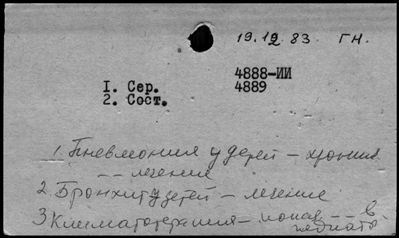 19.12.83 ГН.
4888-ИИ
1. Сер. 4889
2. Сост.
1. Пневмония у детей – хронич
– – лечение
2. Бронхит у детей – лечение
3. Климатотерапия – – – в